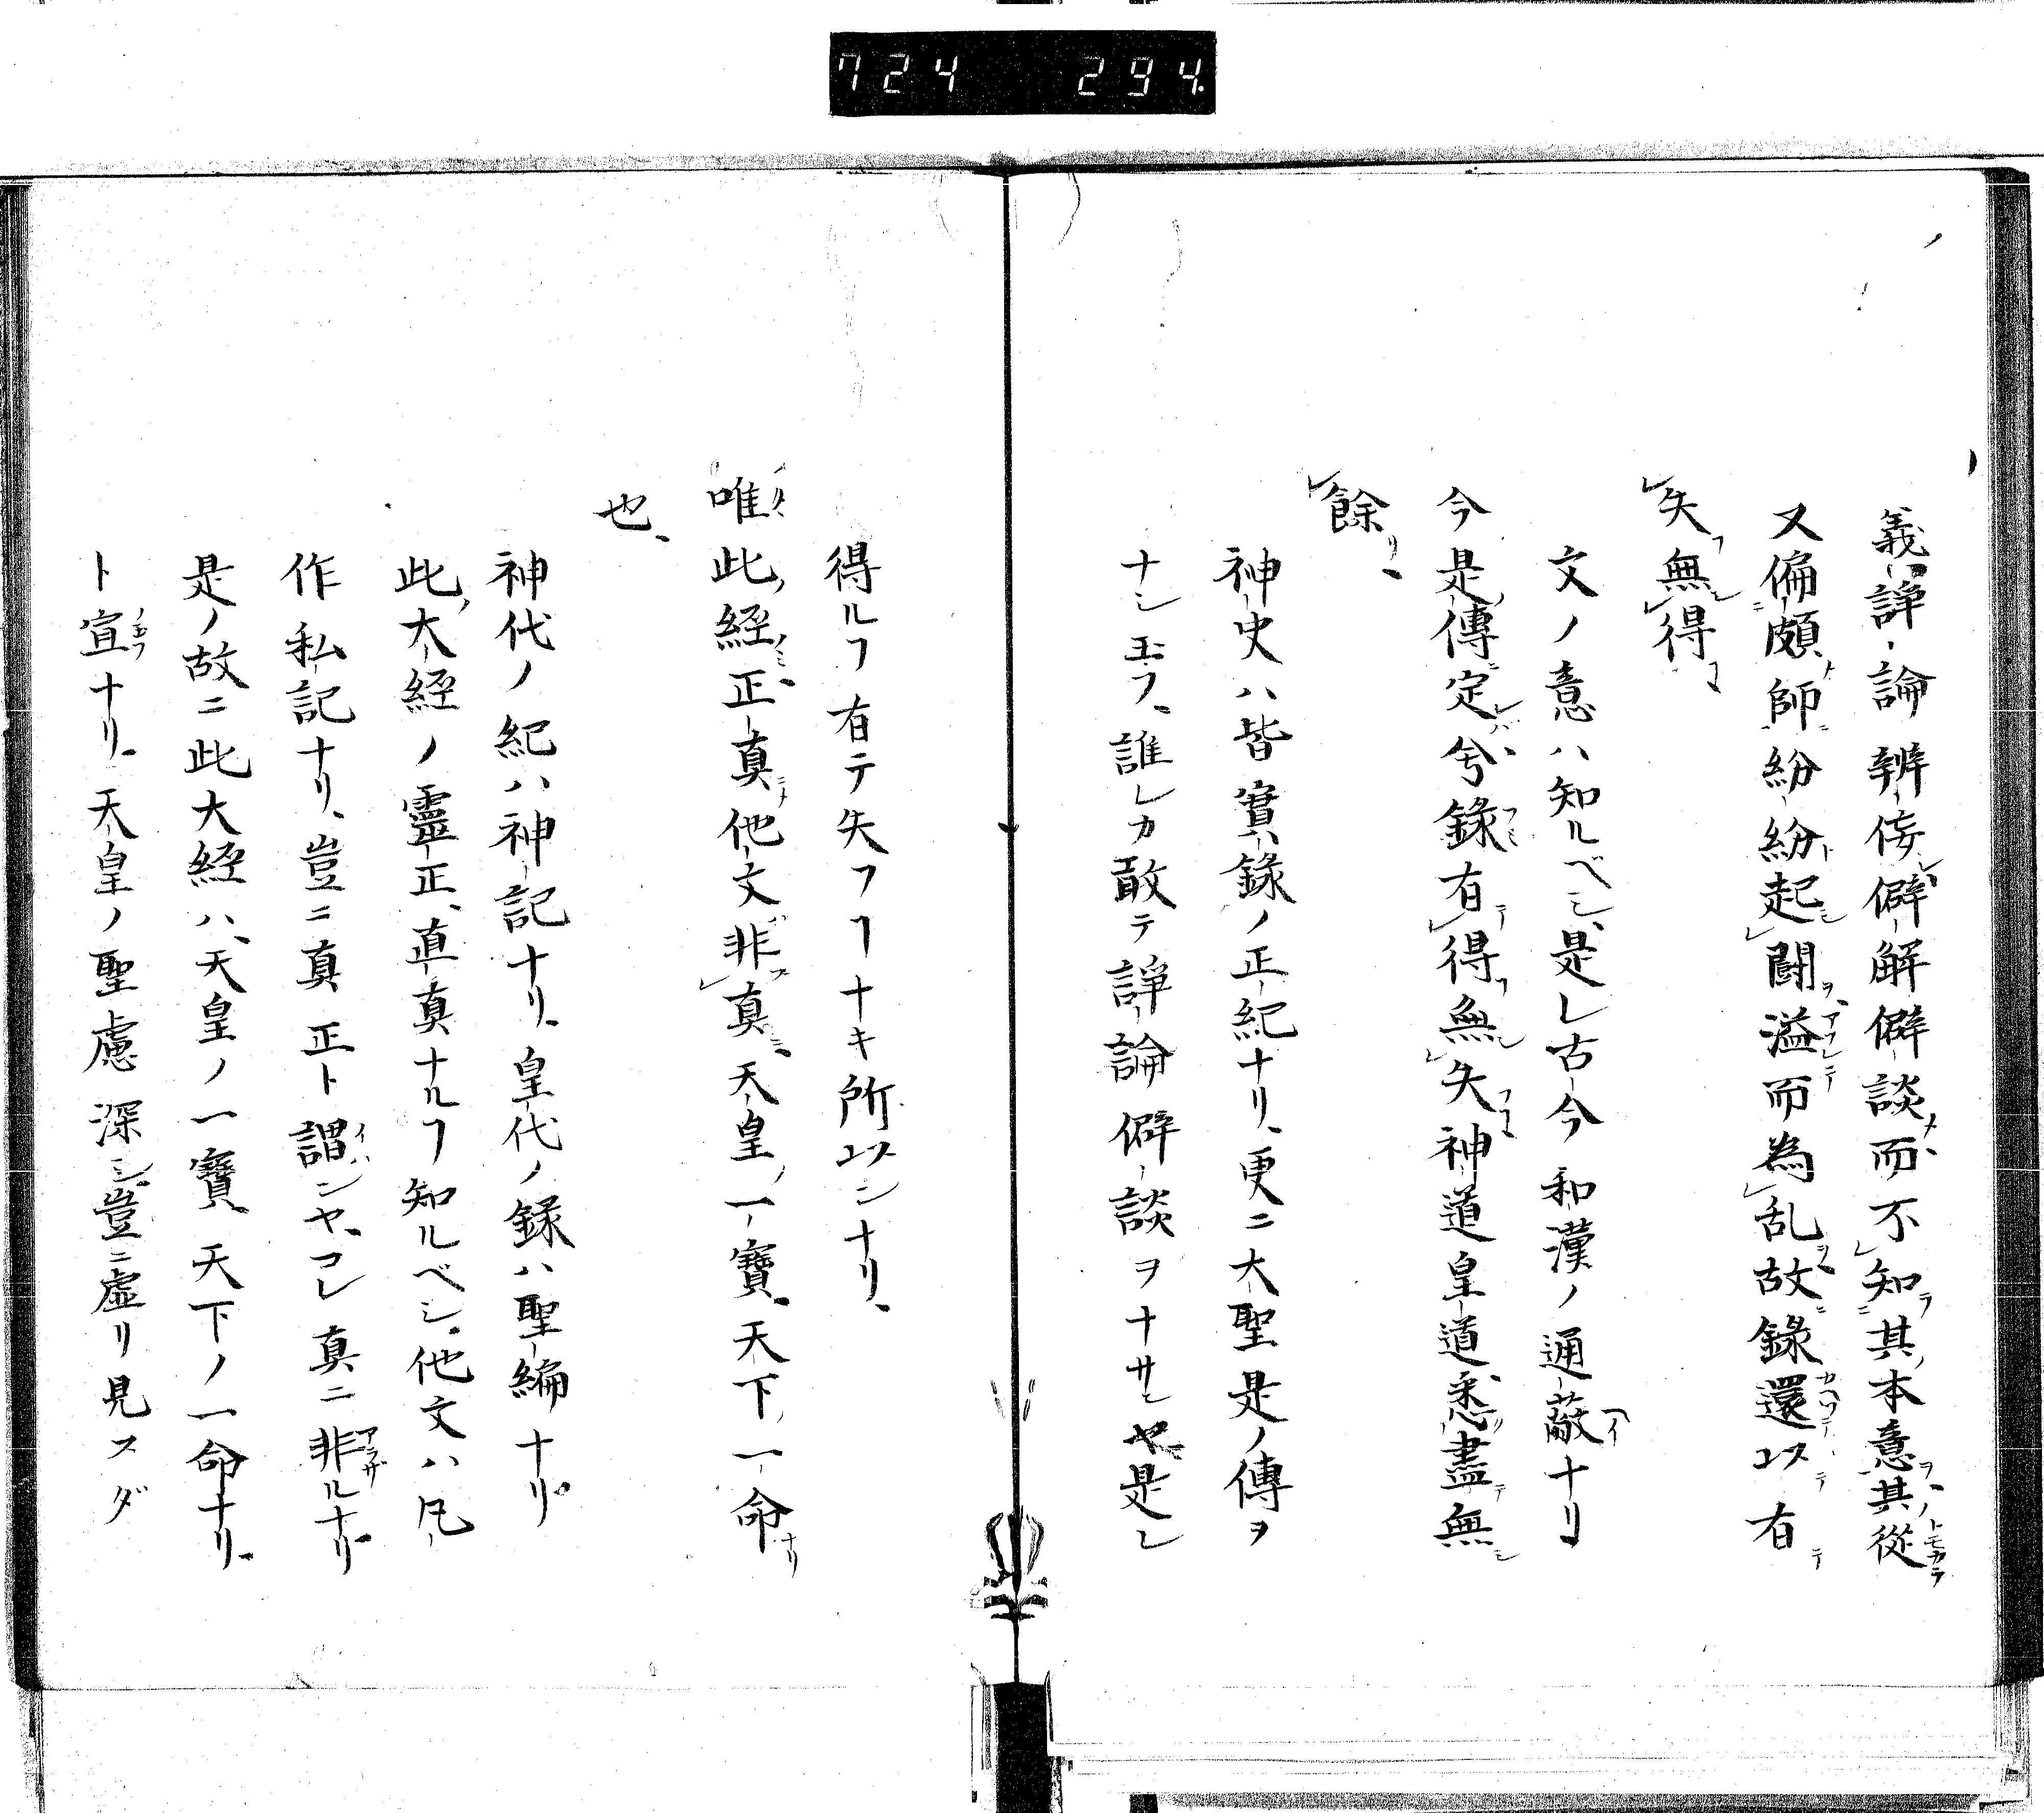 724 294
義諍論辨侫僻解僻談而不知其本意其從
又偏頗師紛紛起闘溢而為乱故錄還以有
失無得
文ノ意ハ知ルベシ、是レ古今和漢ノ通蔽ナリ
今是傳定兮錄有得無失神道皇道悉盡無
餘
神史ハ皆實錄ノ正紀ナリ、更ニ大聖是ノ傳ヲ
ナシ玉フ、誰レカ敢テ諍論僻談ヲナサンヤ是レ
得ルヿ有テ失フヿナキ所以ンナリ、
唯此經正真他文非真天皇一寶天下一命
也、
神代ノ紀ハ神記ナリ、皇代ノ録ハ聖編ナリ
此大經ノ靈正直真ナルヿ知ルベシ他文ハ凡
作私記ナリ、豈ニ真正ト謂ンヤ、コレ真ニ非ルナリ
是ノ故ニ此大經ハ、天皇ノ一寶天下ノ一命ナリ、
ト宣ナリ、天皇ノ聖慮深シ、豈ニ虛リ見スダ